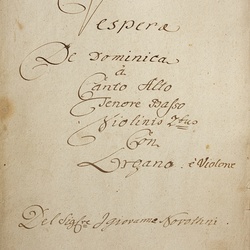 Vesperæ
De Dominica
à
Canto Alto
Tenore Basso
Violinis 2bus
Con
Organo. è Violone
Del Sigre